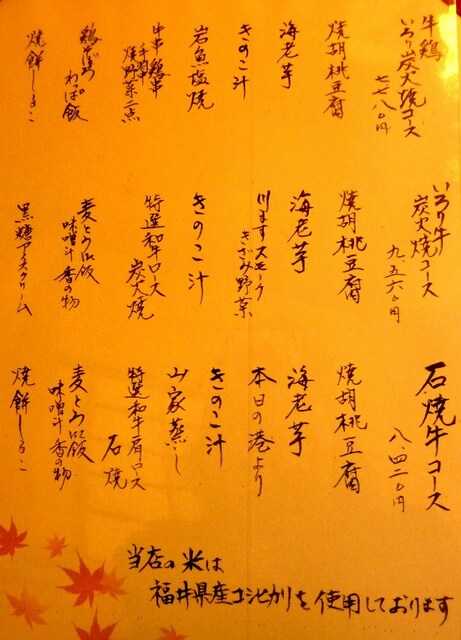 牛鶏
いろり炭火焼コース
七七八〇円
焼胡桃豆腐
海老芋
きのこ汁
岩魚塩焼
牛串 鶏串
焼野菜二点
鶏そぼろ
わっぱ飯
焼餅しるこ
いろり牛
炭火焼コース
九.五六〇円
焼胡桃豆腐
海老芋
川ますスモーク
きざみ野菜
きのこ汁
特選和牛ロース
炭火焼
麦とろ飯
味噌汁 香の物
黒糖アイスクリーム
石焼牛コース
八.四二〇円
焼胡桃豆腐
海老芋
本日の港より
きのこ汁
山家蒸し
特選和牛肩ロース
石焼
麦とろ飯
味噌汁 香の物
焼餅しるこ
当店の米は
福井県産コシヒカリを使用しております